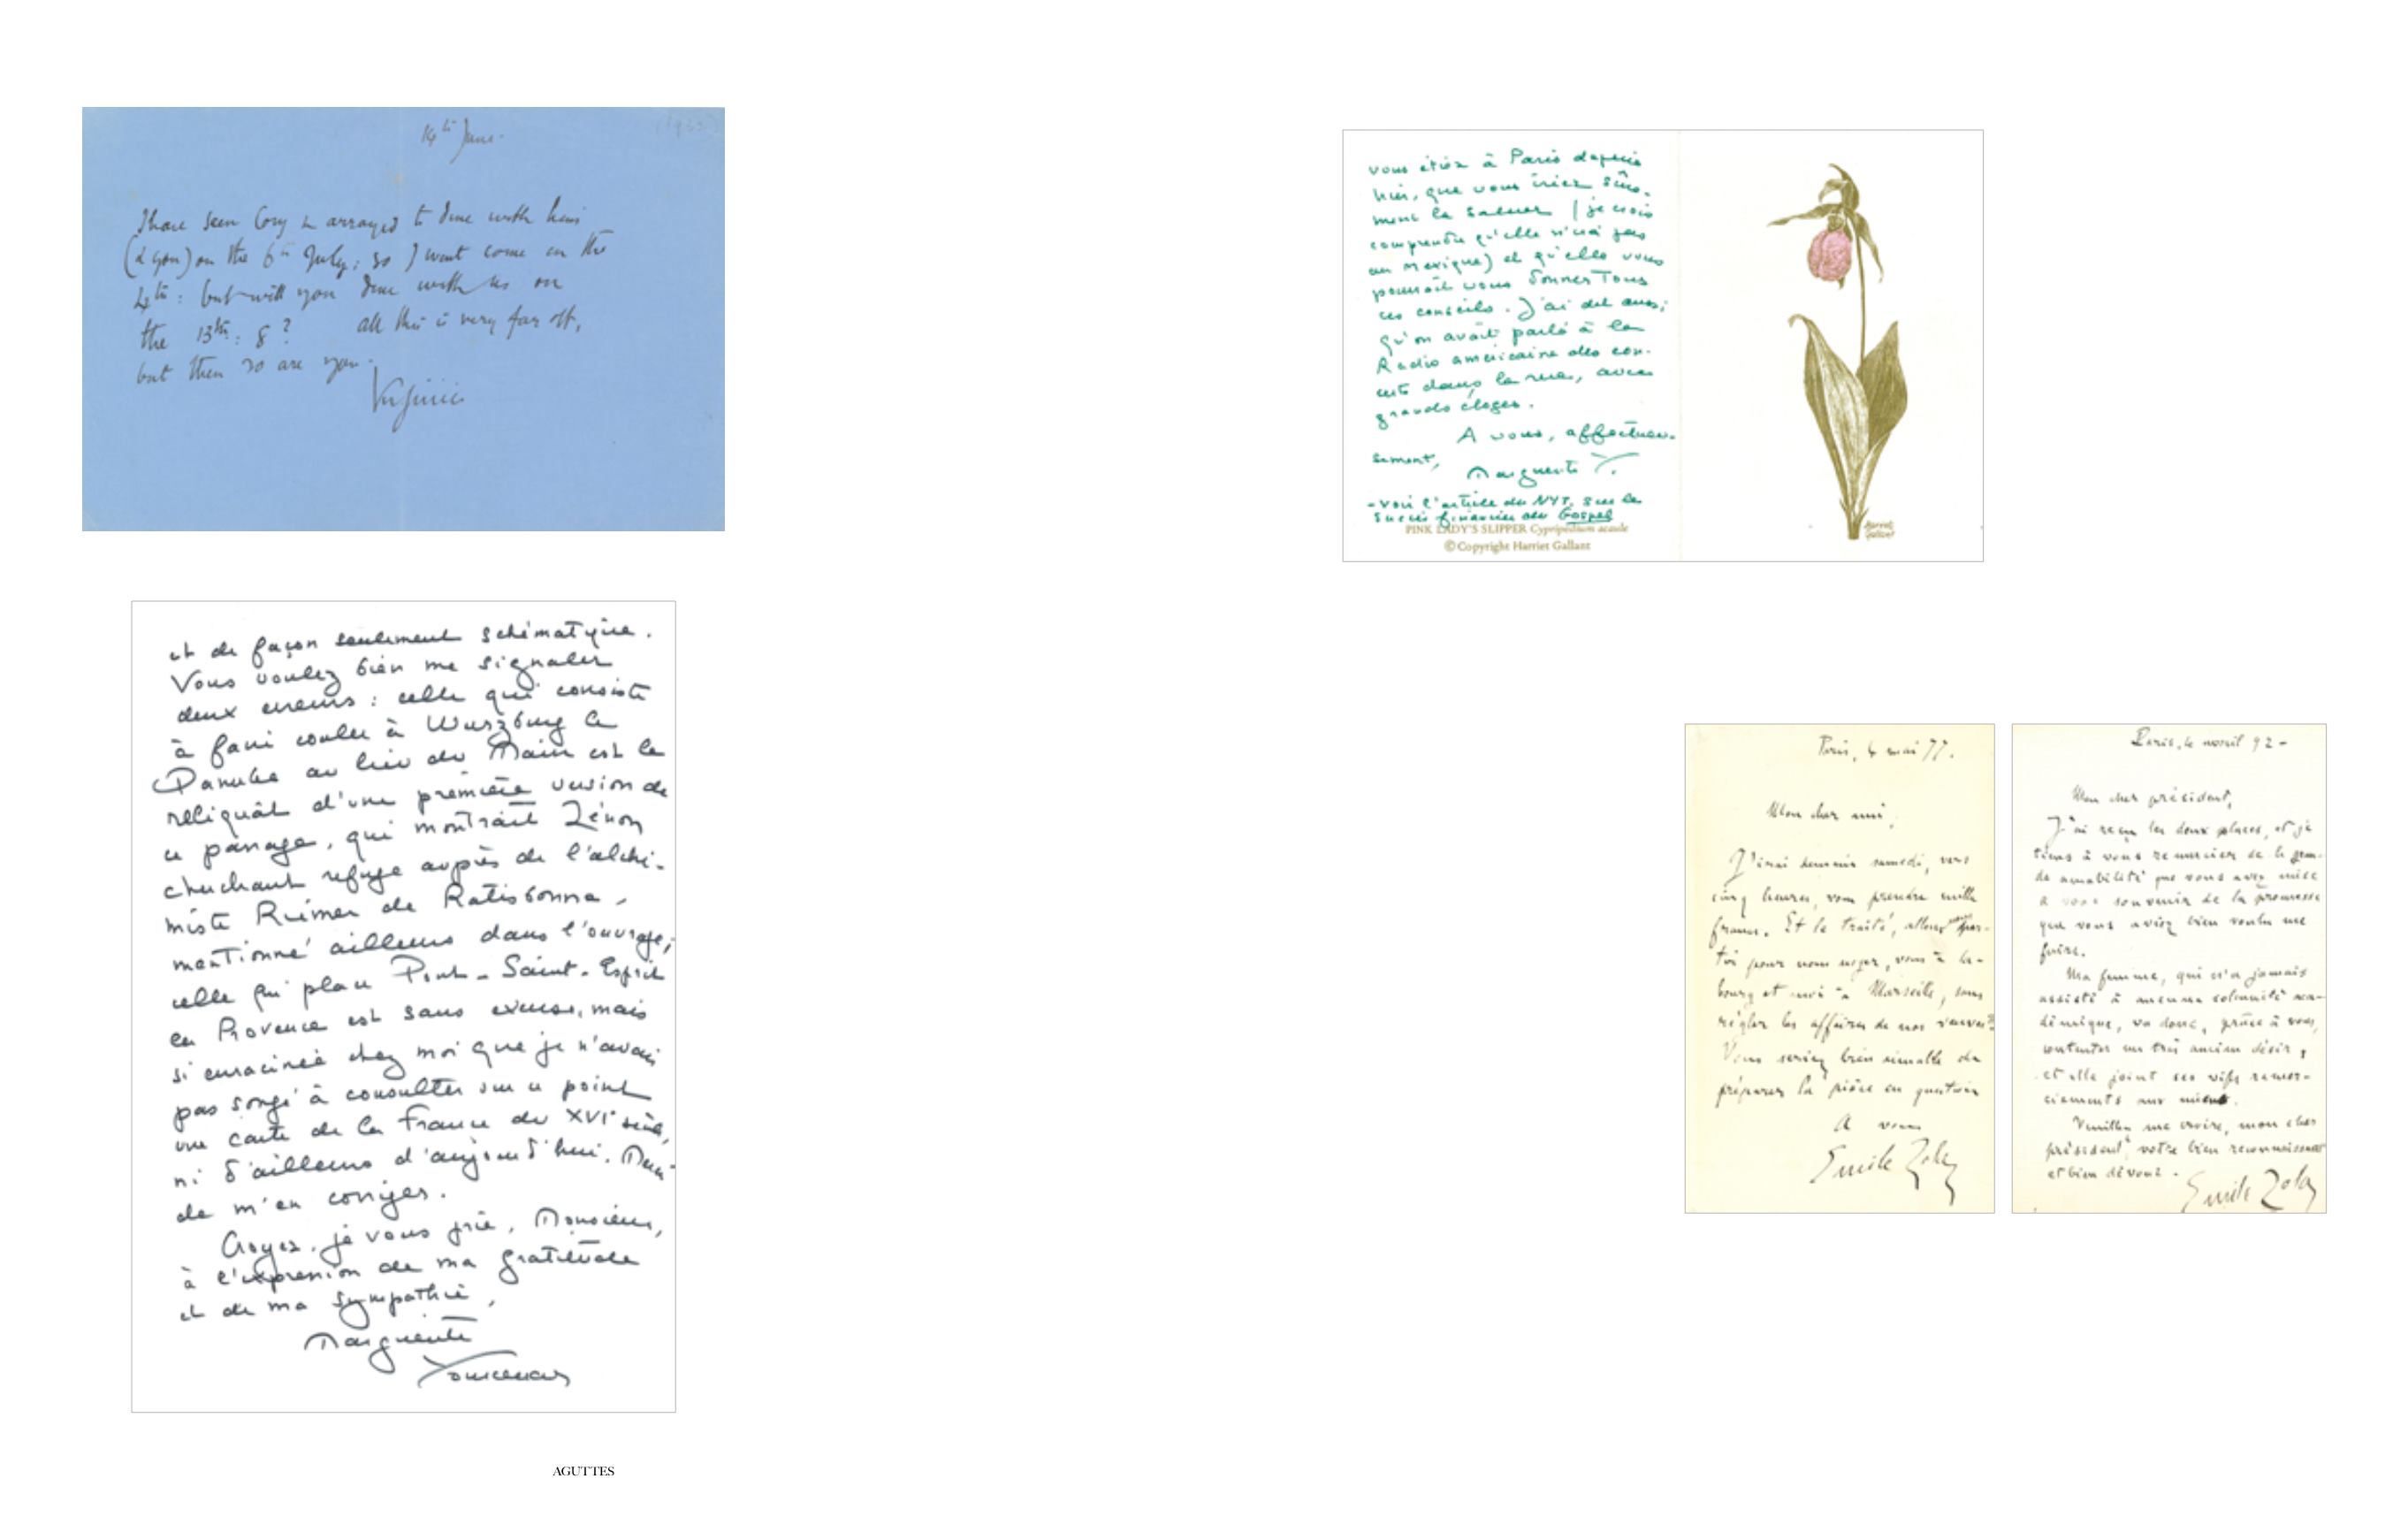 14th June.
I have seen Cory & arranged to dine with him
(& you) on the 6th July; so I wont come on the
4th: but will you dine with us on
the 13th: 8? All this is very far off,
but then so are you.
Virginia
et de façon seulement schématique.
Vous voulez bien me signaler
deux erreurs : celle qui consiste
à faire couler à Wurzburg le
Danube au lieu du Main est le
reliquat d'une première version de
ce passage, qui montrait Zénon
cherchant refuge auprès de l'alchi-
miste Riemer de Ratisbonne,
mentionné ailleurs dans l'ouvrage;
celle qui place Pont-Saint-Esprit
en Provence est sans excuse, mais
si enracinée chez moi que je n'avais
pas songé à consulter sur ce point
une carte de la France du XVIe siècle,
ni d'ailleurs d'aujourd'hui. Merci
de m'en corriger.
Croyez, je vous prie, Monsieur,
à l'expression de ma gratitude
et de ma sympathie,
Marguerite
Yourcenar
AGUTTES
vous étiez à Paris depuis
hier, que vous iriez sûre-
ment la saluer (je crois
comprendre qu'elle n'ira pas
au Mexique) et qu'elle vous
pourrait vous donner tous
ces conseils. J'ai dit aussi
qu'on avait parlé à la
Radio américaine des con-
certs dans la rue, avec
grands éloges.
A vous, affectueu-
sement,
Marguerite Y.
- Voir l'article du NYT, sur le
succès financier du Gospel
PINK LADY'S SLIPPER Cypripedium acaule
© Copyright Harriet Gallant
Harriet
Gallant
Paris, 4 mai 77.
Mon cher ami,
J'irai demain samedi, vers
cinq heures, vous prendre mille
francs. Et le traité, allons nous par-
tir pour nous voyer, vous à
bourg et moi à Marseille, sans
régler les affaires de nos
Vous seriez bien aimable de
préparer la pièce en question
A vous
Emile Zola
Paris, le avril 92 -
Mon cher président,
J'ai reçu les deux places, et je
tiens à vous remercier de la gran-
de amabilité que vous avez mise
à vous souvenir de la promesse
que vous aviez bien voulu me
faire.
Ma femme, qui n'a jamais
assisté à aucune solennité aca-
démique, va donc, grâce à vous,
contenter un très ancien désir,
et elle joint ses vifs remer-
ciements aux miens.
Veuillez me croire, mon cher
président, votre bien reconnaissant
et bien dévoué.
Emile Zola